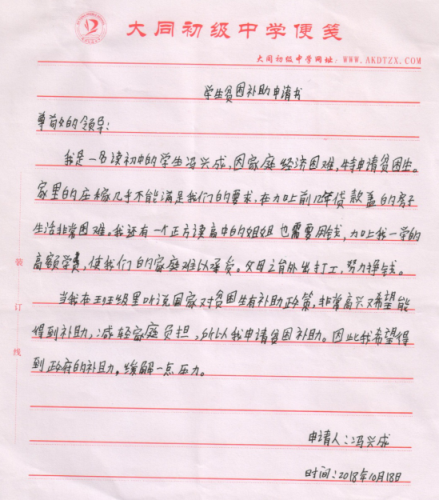 大同初级中学便笺
大同初级中学网址：WWW.AKDTZX.COM
学生贫困补助申请书
尊敬的领导：
我是一名读初中的学生冯兴成，因家庭经济困难，特申请贫困生。
家里的庄稼几乎不能满足我们的要求，在加上前几年贷款盖的房子
生活非常困难。我还有一个正方读高中的姐姐也需要用钱，加上我一学的
高额学费，使我们的家庭难以承受。父母之前外出打工，努力挣钱。
当我在班级里听说国家对贫困生有补助政策，非常高兴又希望能
得到补助，减轻家庭负担，所以我申请贫困补助。因此我希望得
到政府的补助。缓解一点压力。
装
订
线
申请人：冯兴成
时间：2018年10月18日